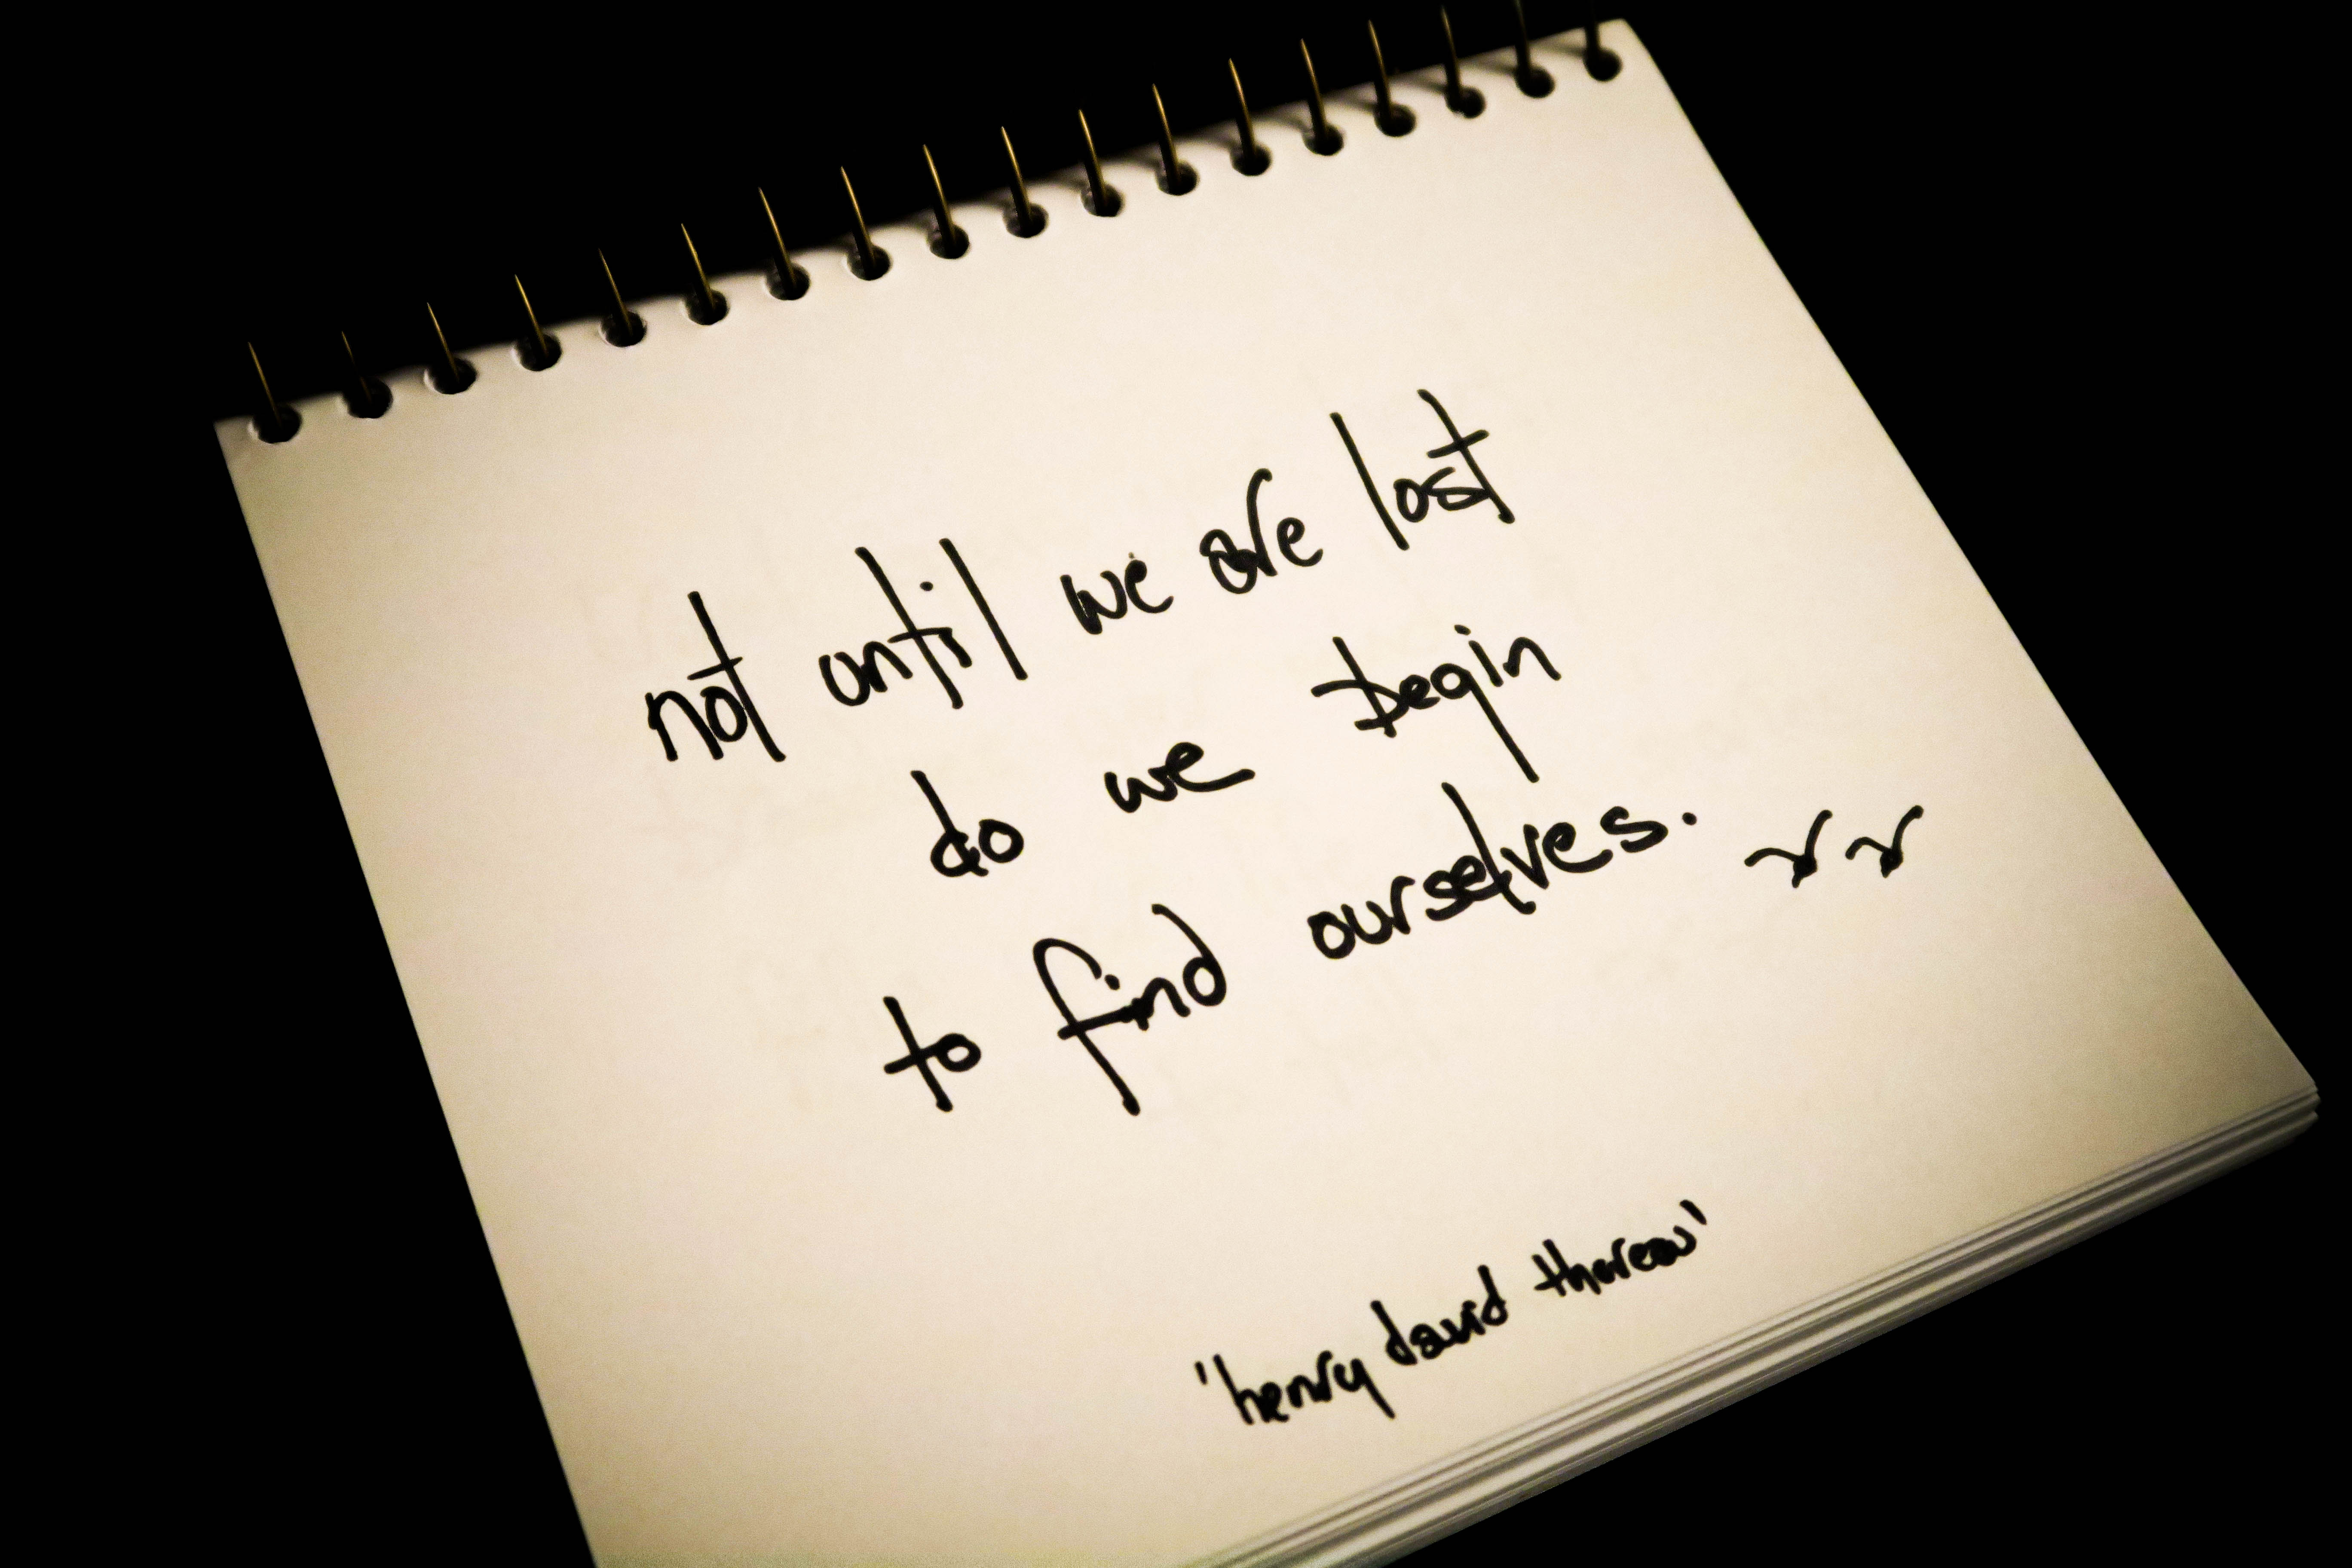 not until we are lost
do we begin
to find ourselves.
"henry david thoreau"